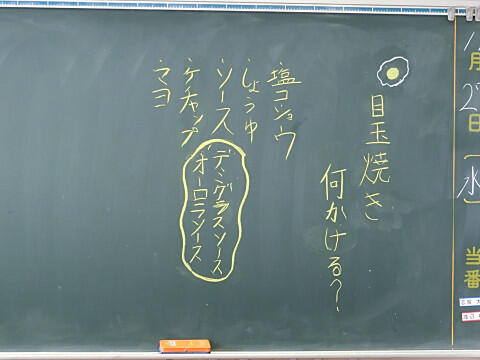 目玉焼き
何かける?
塩コショウ
しょうゆ
ソース
ケチャップ
マヨ
デミグラスソース
オーロラソース
月
日
水
当番